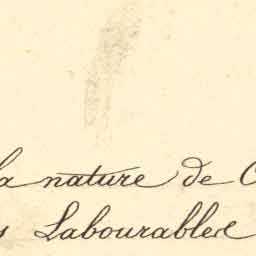 la nature de
Labourables